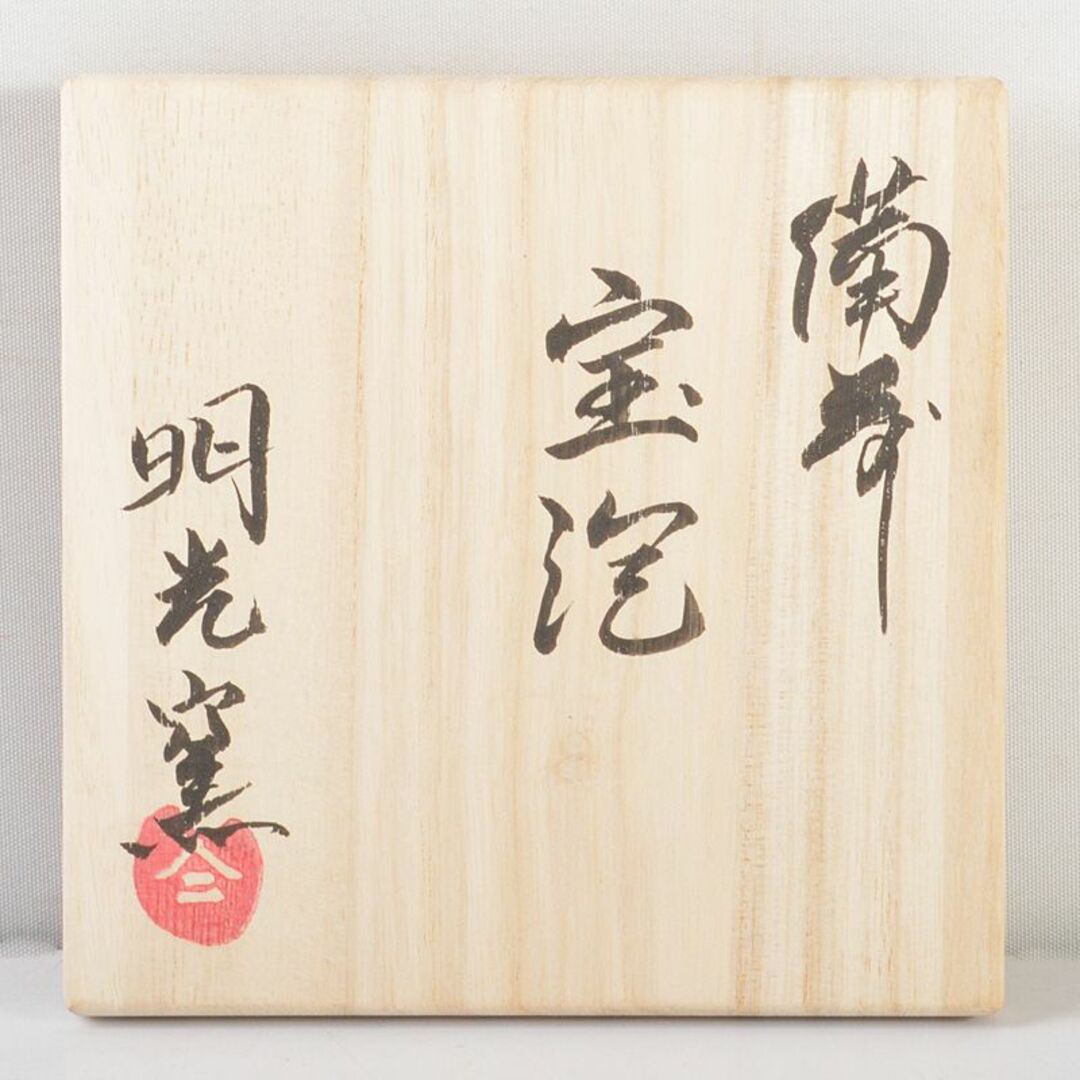 備前
宝泡
明光窯